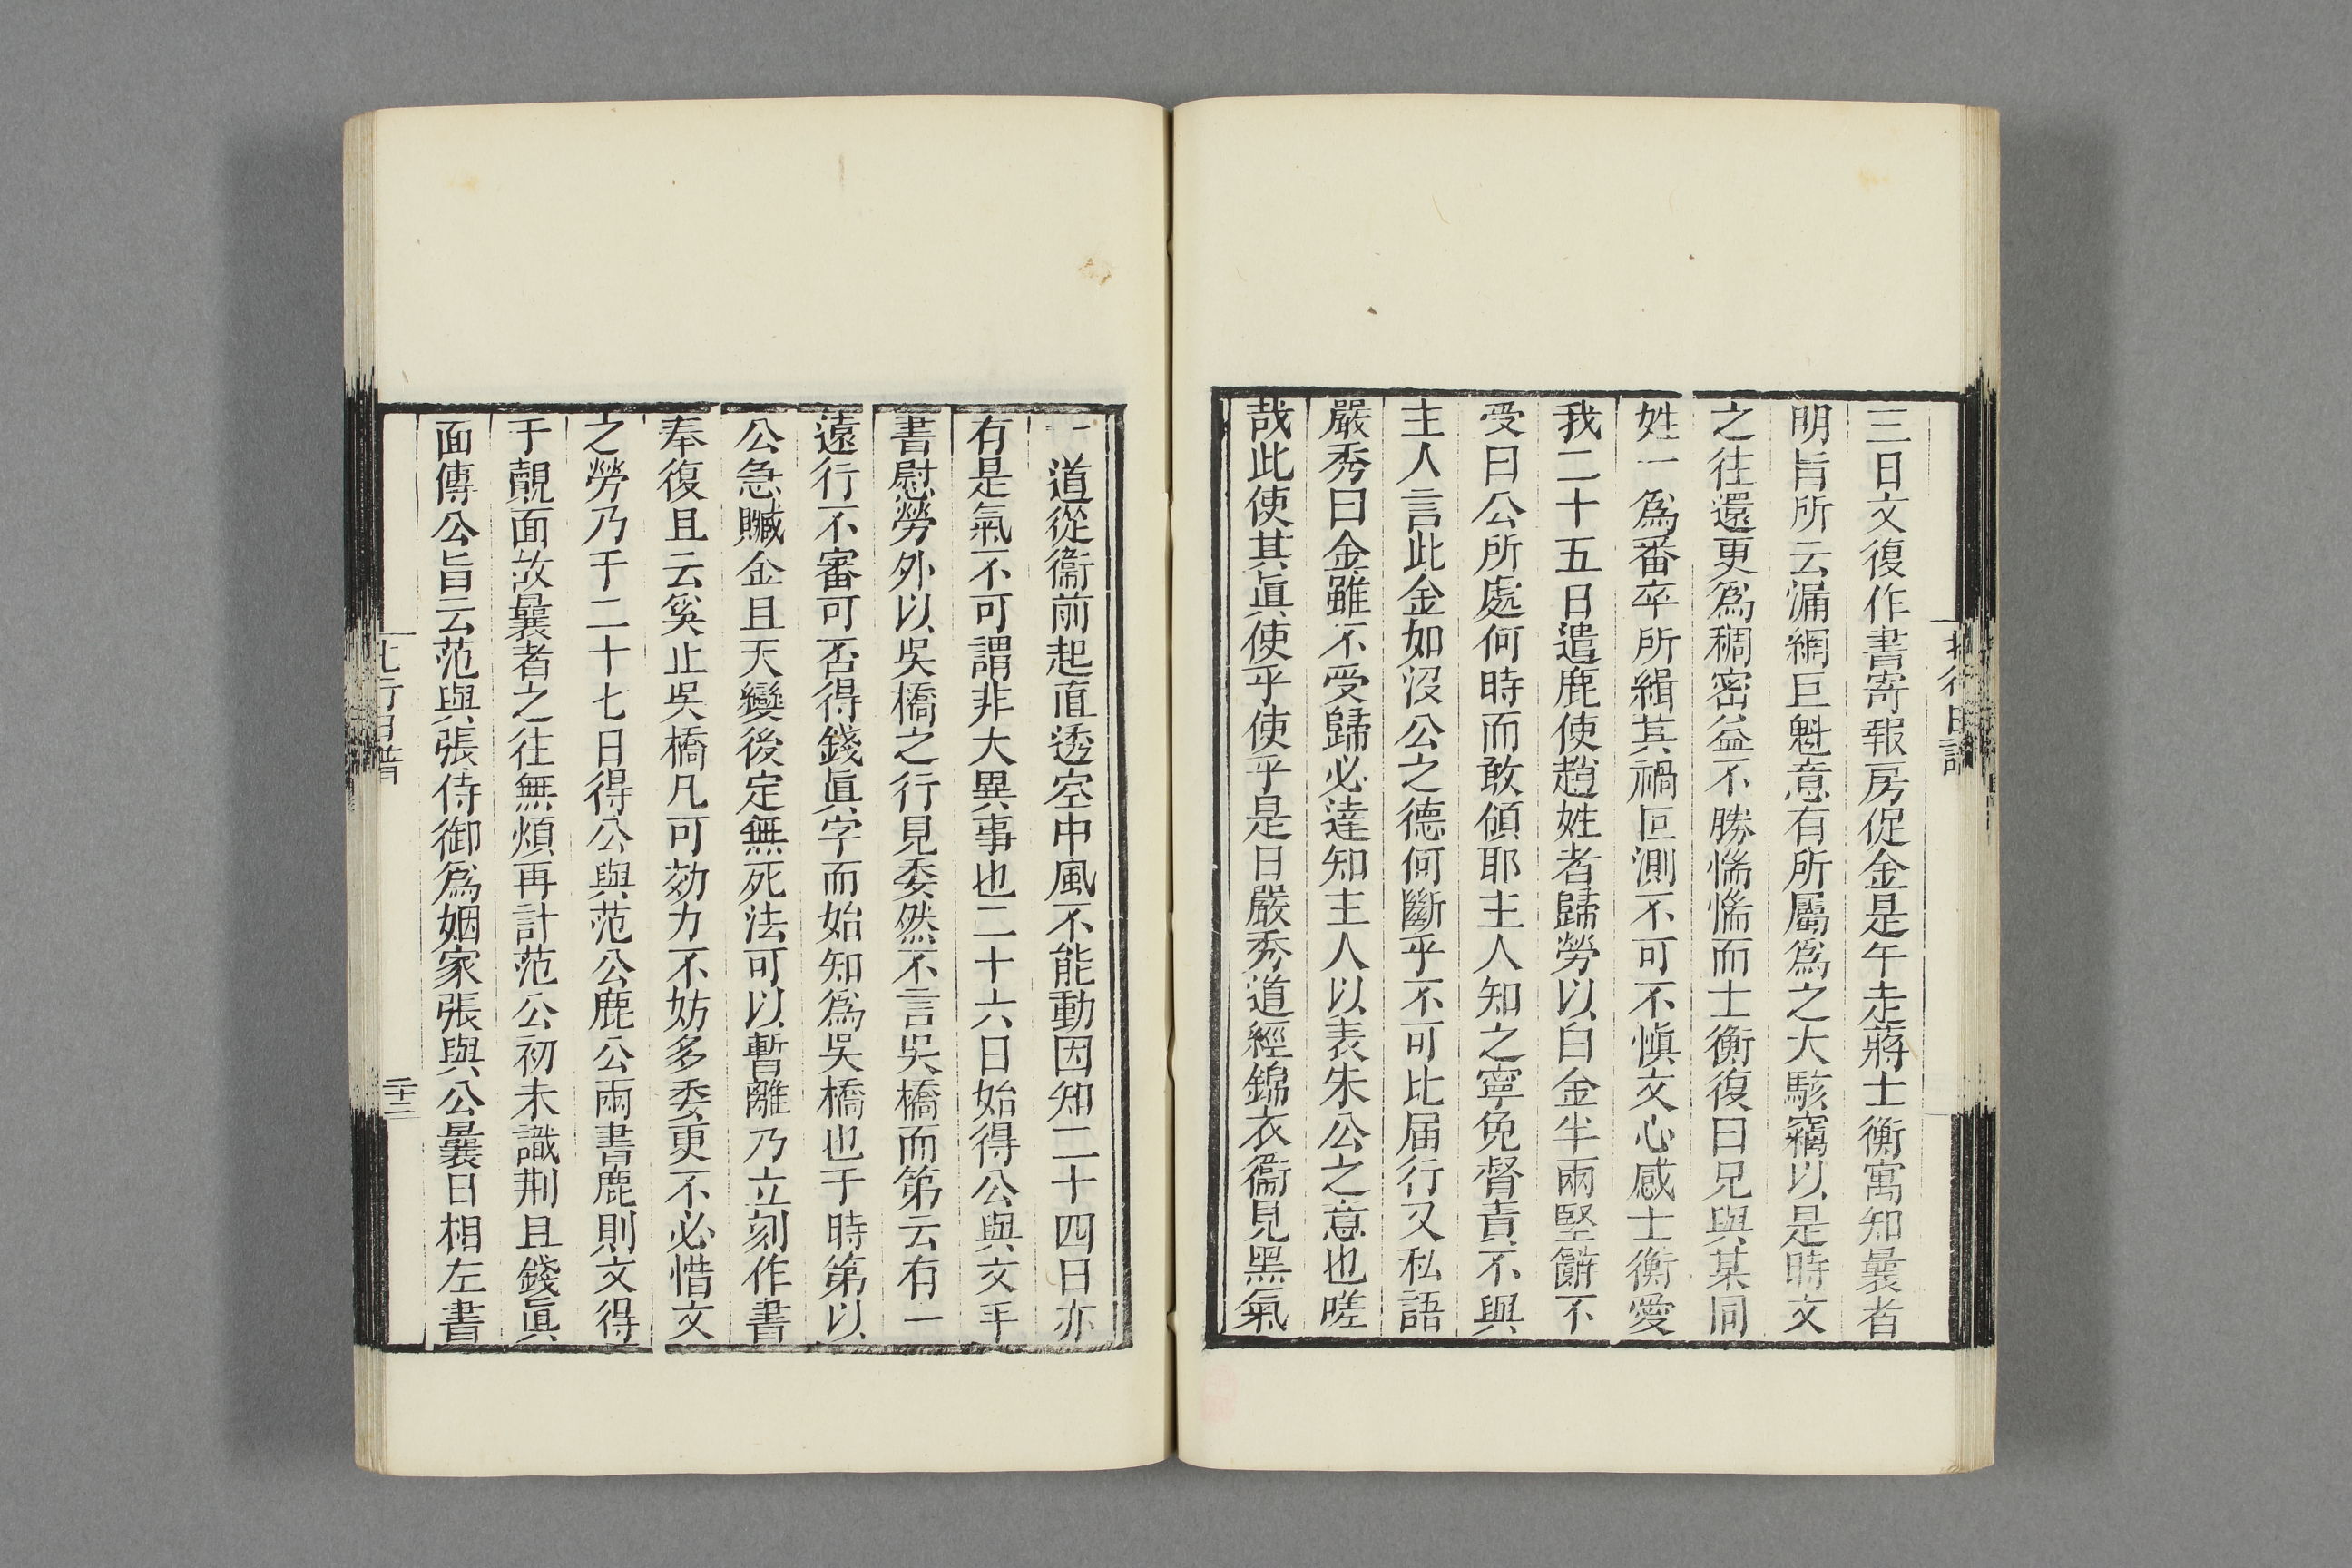 三日文復作書寄報房促金是午走蔣士衡寓知曩者
明旨所云漏網巨魁意有所屬爲之大駭竊以是時文
之往還更爲稠密益不勝惴惴而士衡復曰兄與某同
姓一爲番卒所緝其禍叵測不可不慎文心感士衡愛
我二十五日遣鹿使趙姓者歸勞以白金半兩堅辭不
受曰公所處何時而敢傾耶主人知之寧免督責不與
主人言此金如沒公之德何斷乎不可比届行又私語
嚴秀曰金雖不受歸必達知主人以表朱公之意也嗟
哉此使其眞使乎使乎是日嚴秀道經錦衣衞見黑氣
一道從衞前起直透空中風不能動因知二十四日亦
有是氣不可謂非大異事也二十六日始得公與文平
書慰勞外以吳橋之行見委然不言吳橋而第云有一
遠行不審可否得錢眞字而始知爲吳橋也于時第以
公急贓金且天變後定無死法可以暫離乃立刻作書
奉復且云奚止吳橋凡可効力不妨多委更不必惜文
之勞乃于二十七日得公與范公鹿公兩書鹿則文得
于覿面故曩者之往無煩再計范公初未識荆且錢眞
面傳公旨云范與張侍御爲姻家張與公曩日相左書
北行日譜
二十三